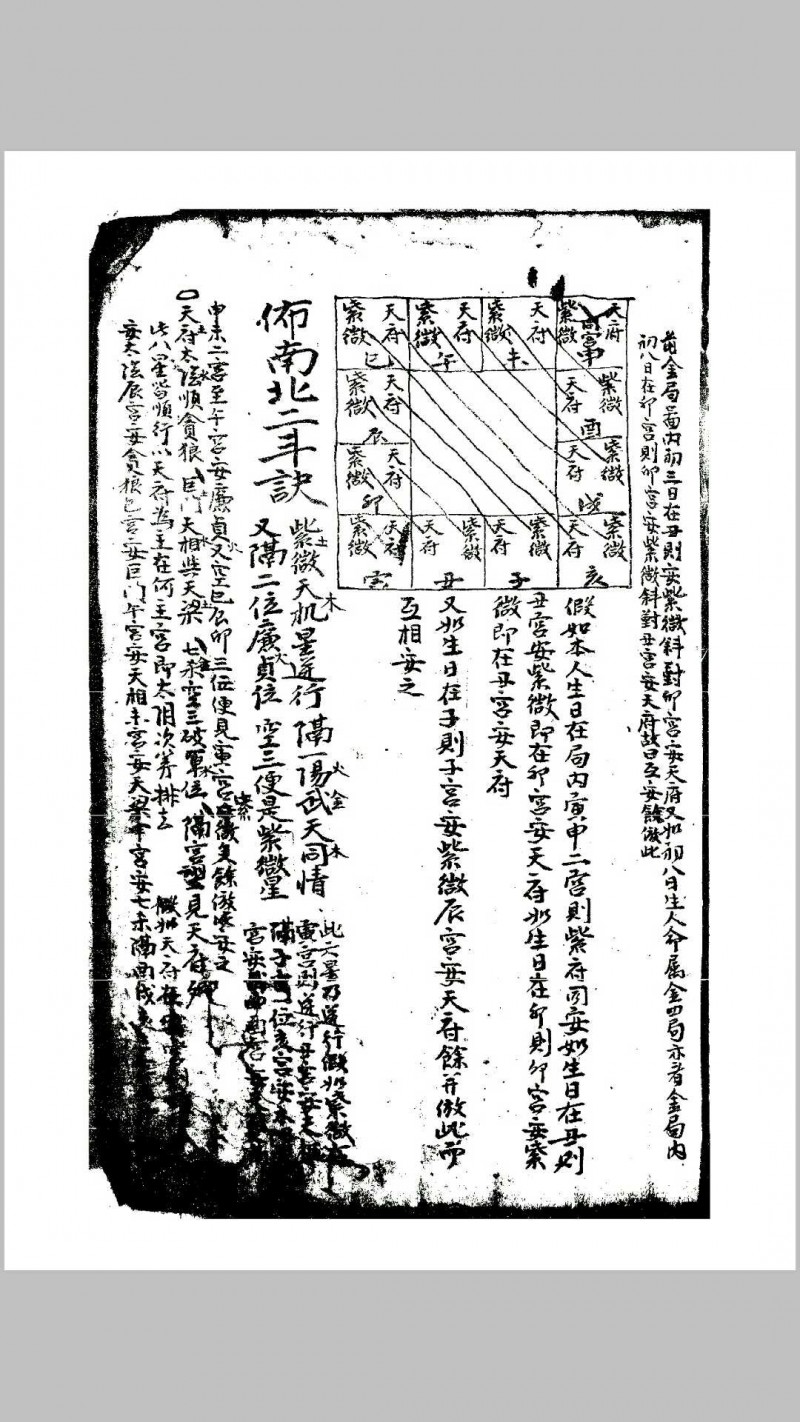 前金局圖內初三日在丑則安紫微斜對卯宮安天府又如初八日生人命属金四局亦看金局內
初八日在卯宮則卯宮安紫微斜對丑宮安天府故曰互安餘倣此
紫微 天府 巳
紫微 天府 午
紫微 天府 未
紫微 天府 同宮 申
紫微 天府 辰
天府 紫微 酉
紫微 天府 卯
天府 紫微 戌
紫微 天府 寅
天府 紫微 丑
天府 紫微 子
天府 紫微 亥
假如本人生日在局內寅申二宮則紫府同安如生日在丑則
丑宮安紫微即在卯宮安天府如生日在卯則卯宮安紫
微即在丑宮安天府
又如生日在子則子宮安紫微辰宮安天府餘并倣此而
互相安之
佈南北二斗訣
紫微天机星逆行 隔一陽武天同情
土 木 火 金 木
又隔二位廉貞位 空三便是紫微星
火
此六星乃逆行假如紫微在
寅宮則逆行丑宮安天
隔子宮一位亥宮安太
宮安
申未二宮至午宮安廉貞又空巳辰卯三位便見寅宮紫微矣餘倣此安之
天府太陰順貪狼 巨門天相與天梁 七杀空三破軍位 隔宮望見天府鄉
此八星皆順行以天府為主在何宮即太陰次第排去 假如天府在
安太陰辰宮安貪狼巳宮安巨門午宮安天相未宮安天梁申宮安七杀隔酉戌